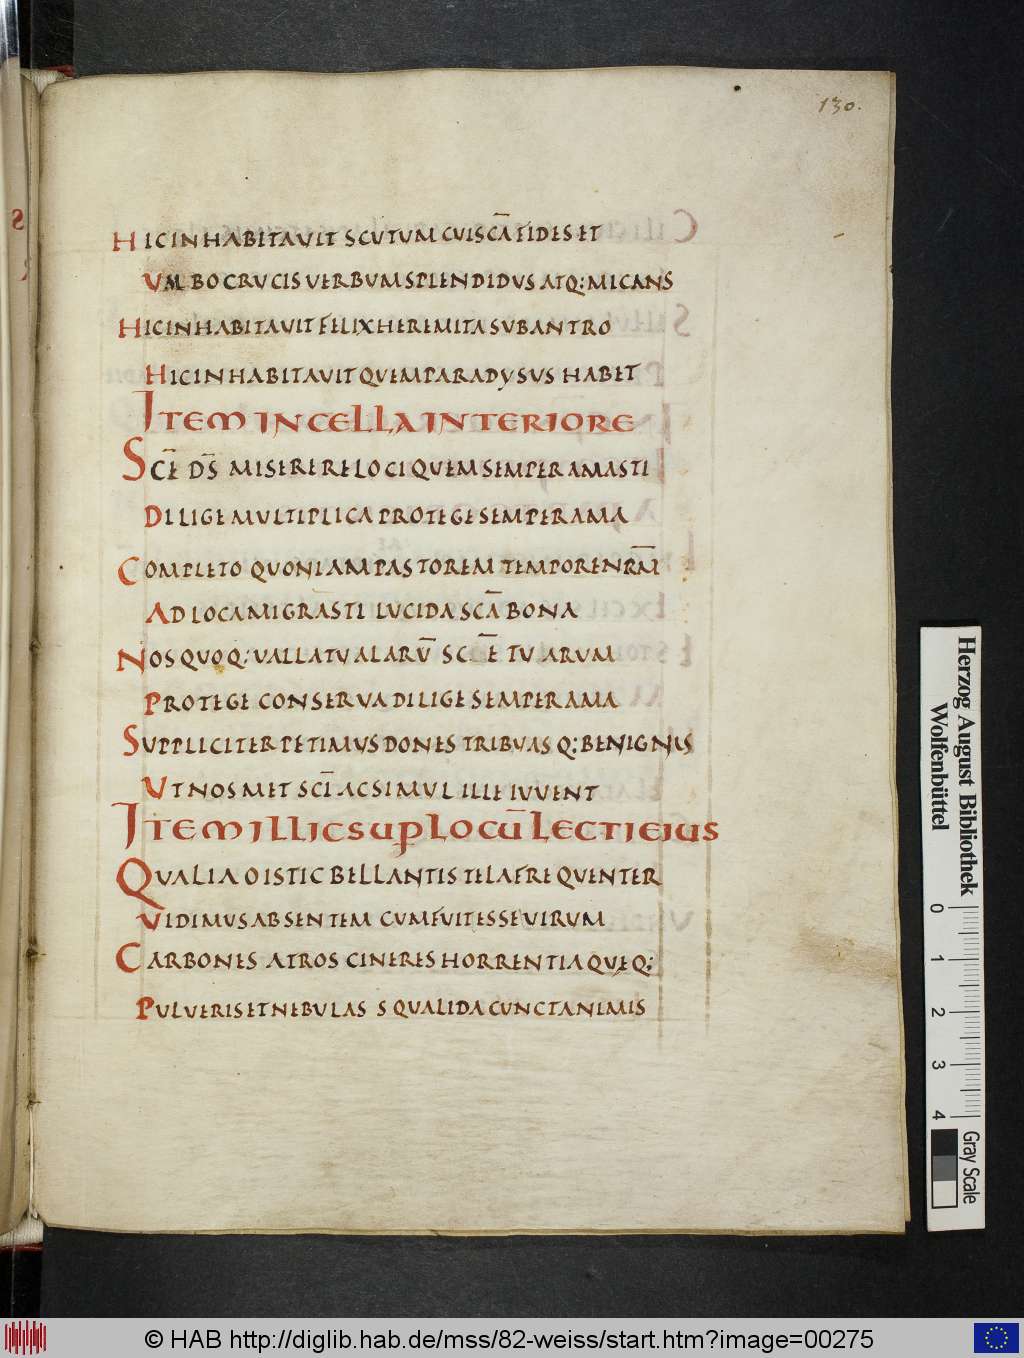 130.
HIC INHABITAVIT SCUTUM CUI SCĀ FIDES ET
UMBO CRUCIS VERBUM SPLENDIDUS ATQ: MICANS
HIC INHABITAVIT FELIX HEREMITA SUB ANTRO
HIC INHABITAVIT QUEM PARADYSUS HABET
ITEM IN CELLA INTERIORE
SC̄E D̄S MISERERE LOCI QUEM SEMPER AMASTI
DILIGE MULTIPLICA PROTEGE SEMPER AMA
COMPLETO QUONIAM PASTOREM TEMPORE NR̄M
AD LOCA MIGRASTI LUCIDA SCĀ BONA
NOS QUOQ: VALLATU ALARŪ SC̄E TUARUM
PROTEGE CONSERVA DILIGE SEMPER AMA
SUPPLICITER PETIMUS DONES TRIBUASQ: BENIGNUS
UT NOSMET SC̄I AC SIMUL ILLE IUVENT
ITEM ILLIC SUP LOCŪ LECTI EIUS
QUALIA O ISTIC BELLANTIS TELA FREQUENTER
VIDIMUS ABSENTEM CUM FUIT ESSE VIRUM
CARBONES ATROS CINERES HORRENTIA QUĘQ:
PULVERIS ET NEBULAS SQUALIDA CUNCTA NIMIS
Herzog August Bibliothek
Wolfenbüttel
0 1 2 3 4
Gray Scale
© HAB http://diglib.hab.de/mss/82-weiss/start.htm?image=00275